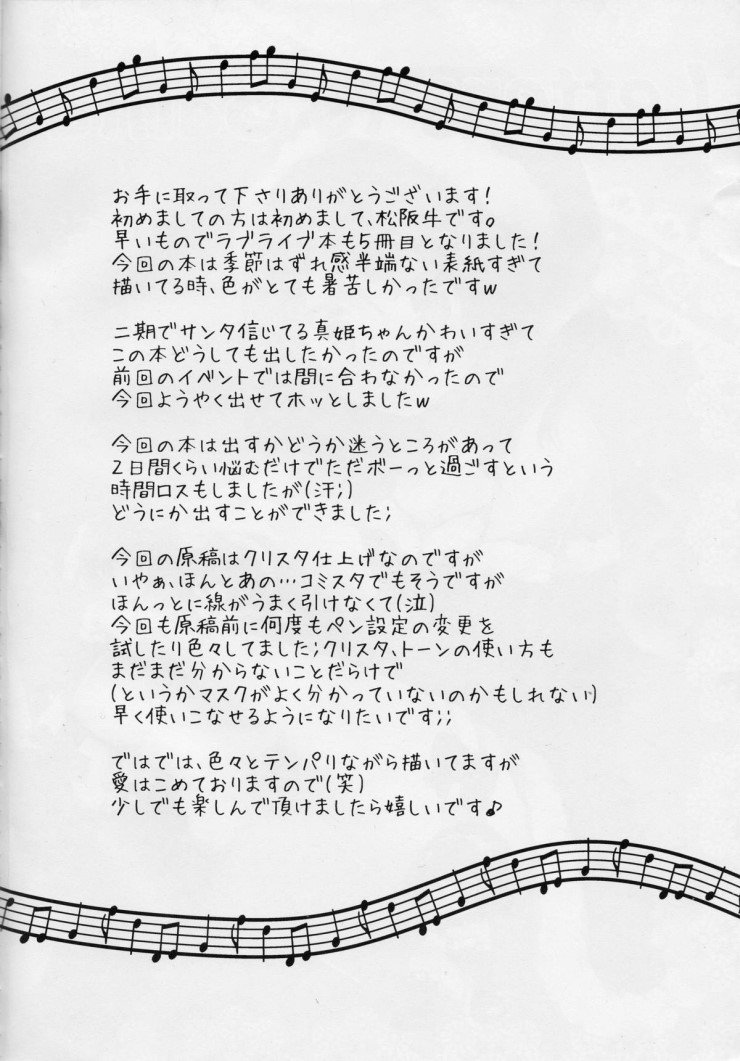 お手に取って下さりありがとうございます!
初めましての方は初めまして、松阪牛です。
早いものでラブライブ本も5冊目となりました!
今回の本は季節はずれ感半端ない表紙すぎて
描いてる時、色がとても暑苦しかったですw
二期でサンタ信じてる真姫ちゃんかわいすぎて
この本どうしても出したかったのですが
前回のイベントでは間に合わなかったので
今回ようやく出せてホッとしましたw
今回の本は出すかどうか迷うところがあって
2日間くらい悩むだけでただボーっと過ごすという
時間ロスもしましたが(汗;)
どうにか出すことができました;
今回の原稿はクリスタ仕上げなのですが
いやぁ、ほんとあの…コミスタでもそうですが
ほんっとに線がうまく引けなくて(泣)
今回も原稿前に何度もペン設定の変更を
試したり色々してました;クリスタ、トーンの使い方も
まだまだ分からないことだらけで
(というかマスクがよく分かっていないのかもしれない)
早く使いこなせるようになりたいです;;
ではでは、色々とテンパリながら描いてますが
愛はこめておりますので(笑)
少しでも楽しんで頂けましたら嬉しいです♪